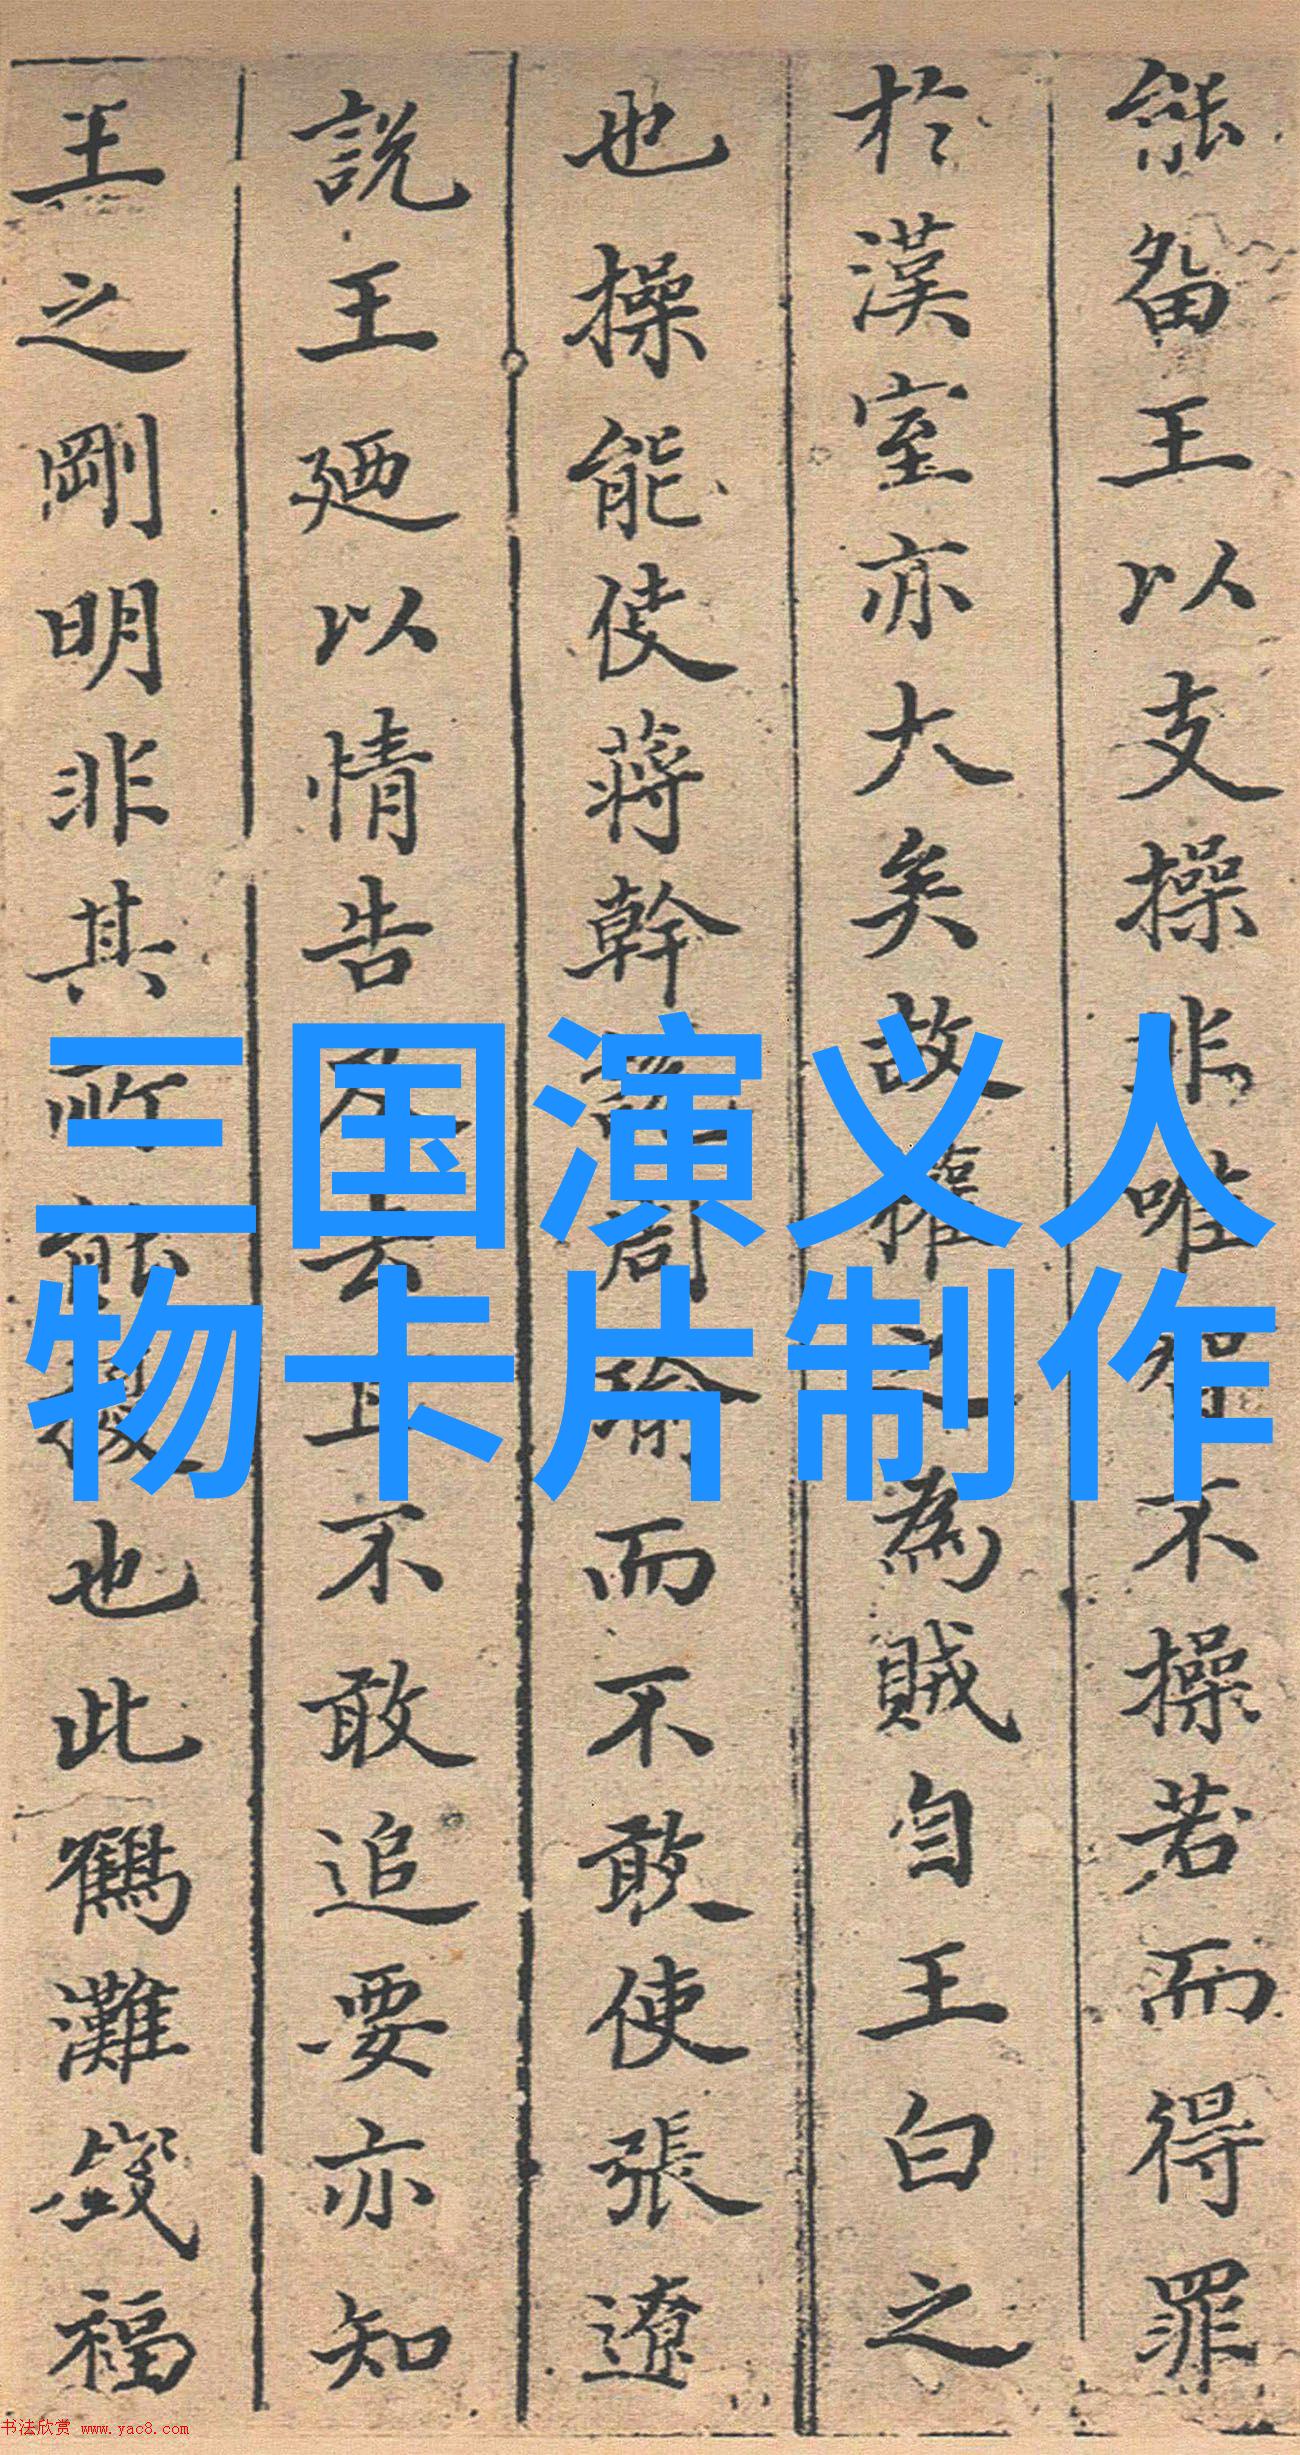 能留王以支操非唯智不操若而得罪
於漢室亦大矣故權之為賊自王白之
也操能使蔣幹説周瑜而不敢使張遼
説王王廼以情告及去且不敢追要亦知
王之剛明非其所能緩也此鶴灘錢福
三国演义人
物卡片制作
书法欣赏 www.yac8.com